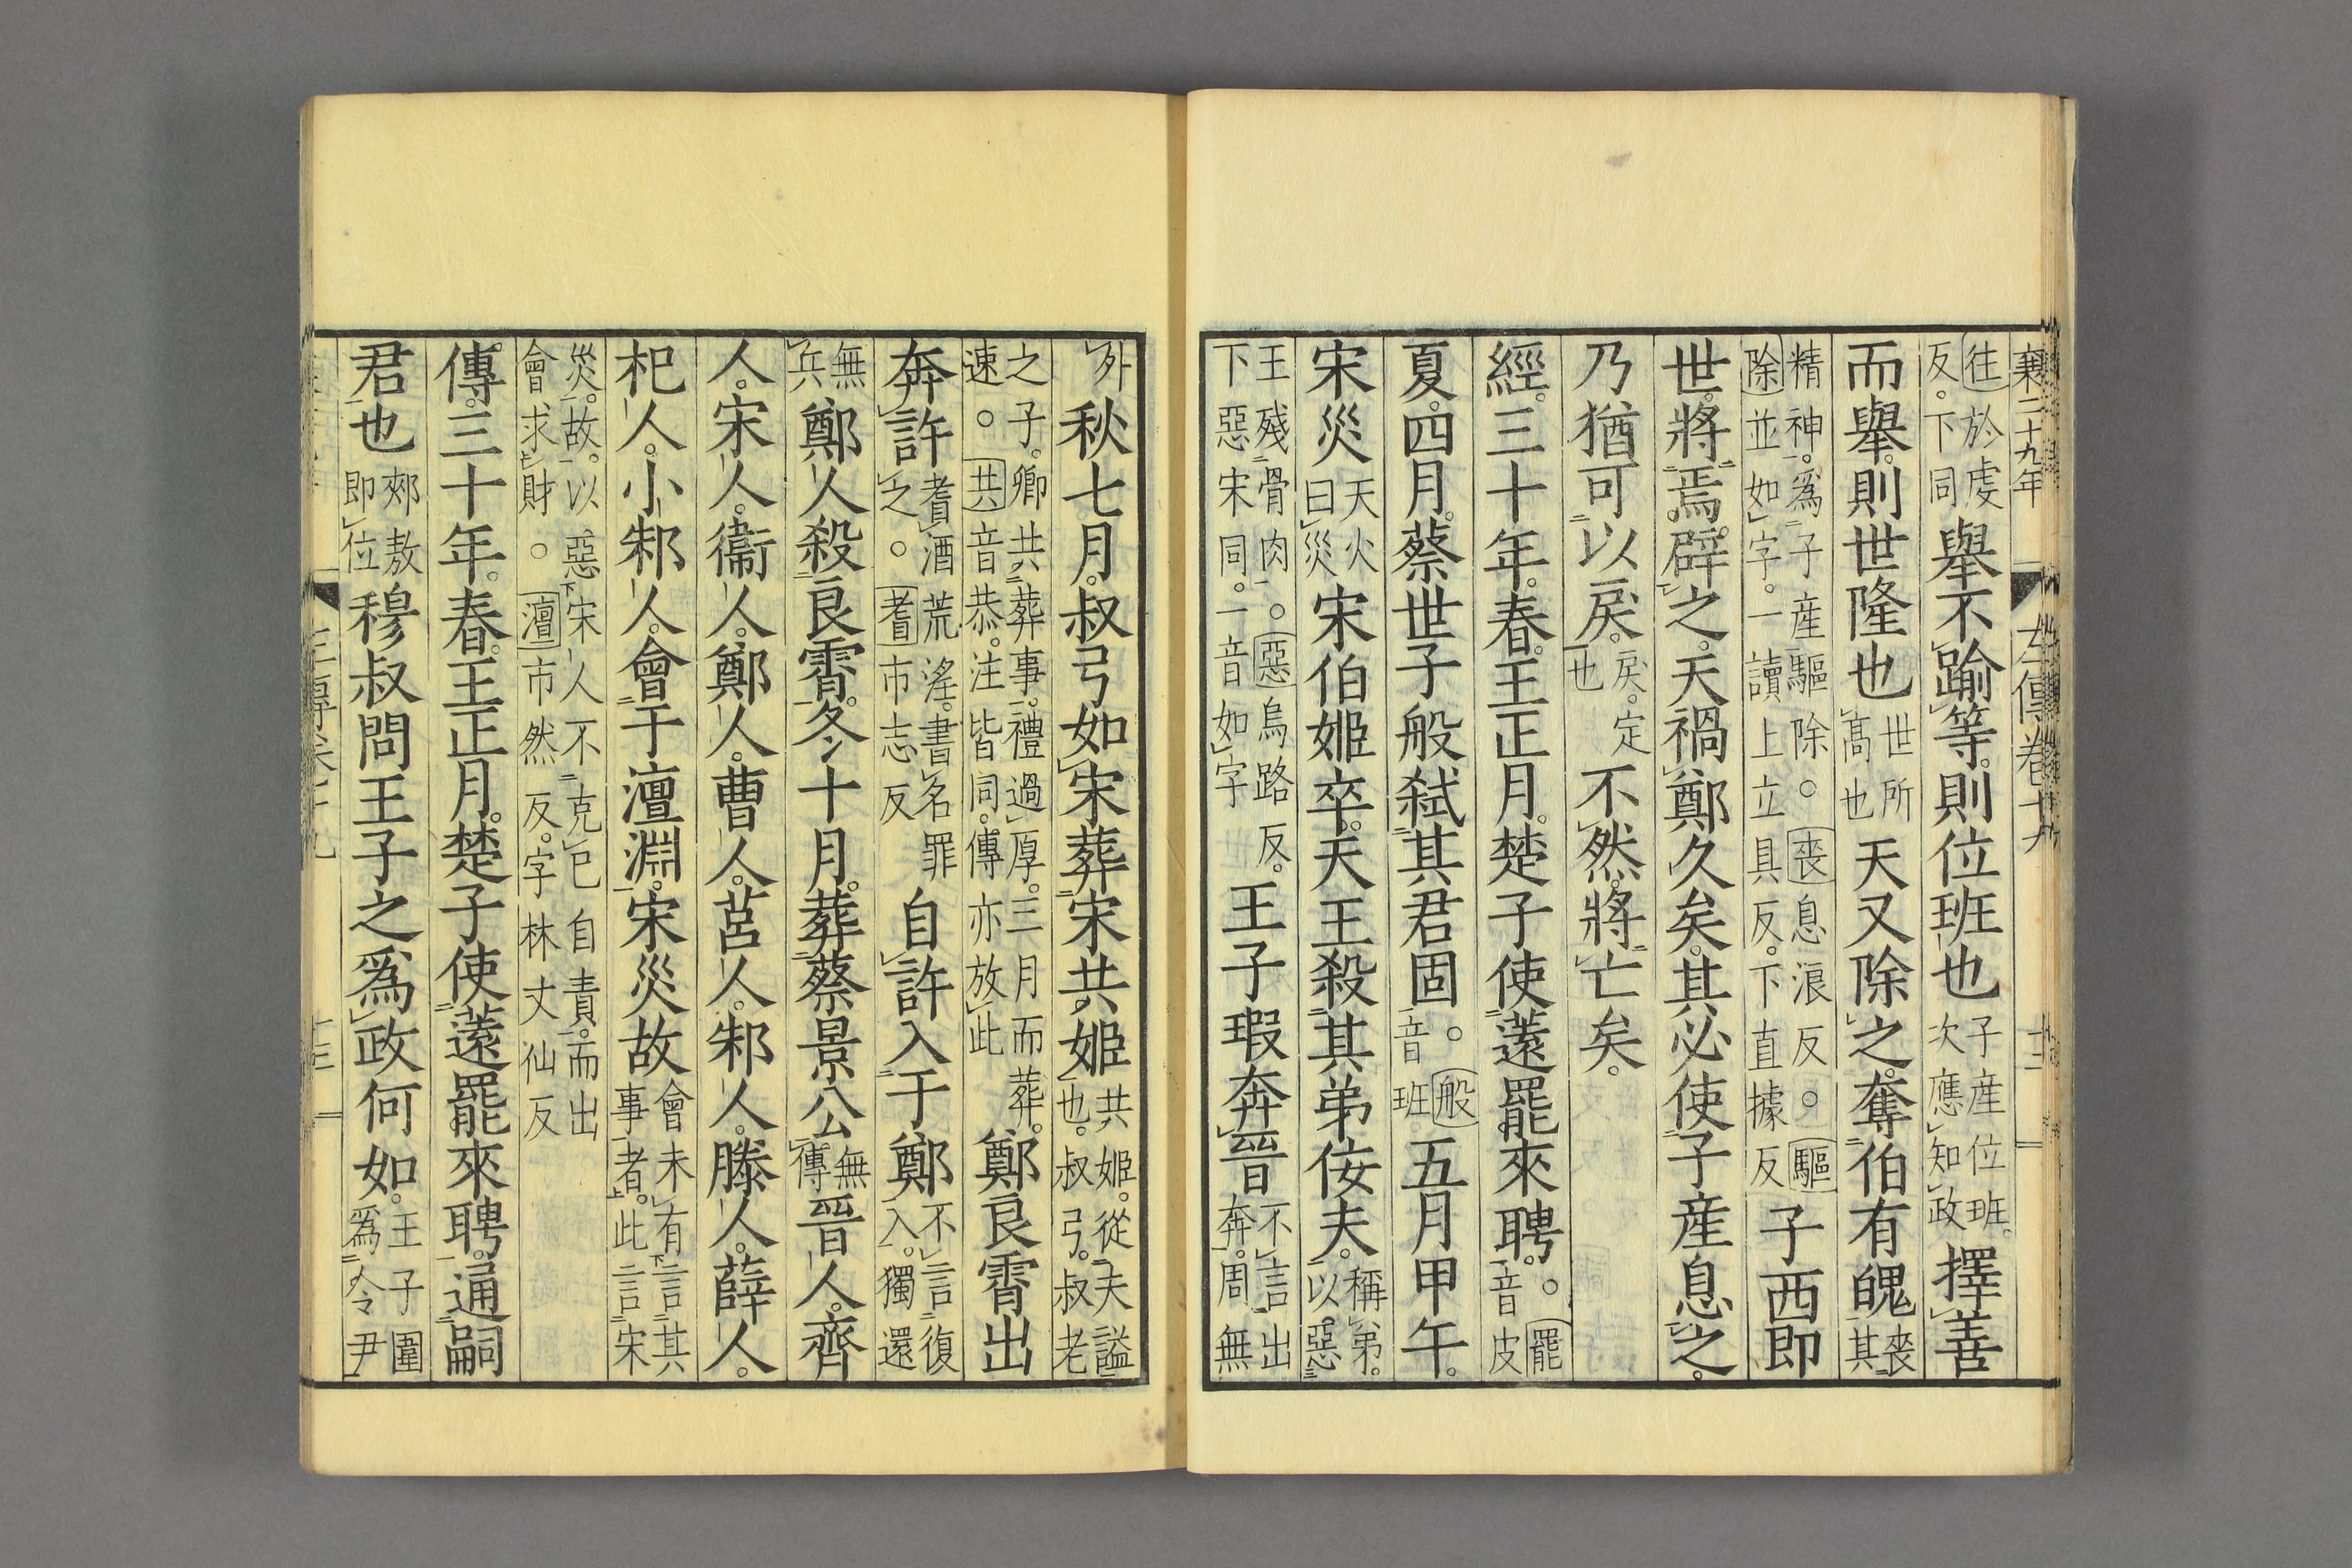 襄二十九年　左傳卷十九　十二
往於虔反。下同舉不踰等。則位班也子産位班。次應知政擇善
而舉。則世隆也世所髙也天又除之。奪伯有魄喪其
精神。爲子産驅除○喪息浪反。○驅除並如字。一讀上立具反。下直據反子西即
世。將焉辟之。天禍鄭久矣。其必使子産息之。
乃猶可以戾。戾。定也不然。將亡矣。
經。三十年。春。王正月。楚子使薳罷來聘。○罷音皮
夏。四月。蔡世子般弑其君固○般音班。五月甲午。
宋災天火曰災宋伯姬卒。天王殺其弟佞夫。稱弟。以惡
王殘骨肉。○惡烏路反。下惡宋同。一音如字王子瑕奔晉不言出奔。周無
外秋七月。叔弓如宋。葬宋共姬共姬。從夫諡也。叔弓。叔老
之子。卿共葬事。禮過厚。三月而葬。速○共音恭。注皆同。傳亦放此鄭良霄出
奔許耆酒荒淫。書名罪之○耆市志反自許入于鄭不言復入。獨還
無兵鄭人殺良霄。冬十月。葬蔡景公無傳晉人。齊
人。宋人。衞人。鄭人。曹人。莒人。邾人。滕人。薛人。
杞人。小邾人。會于澶淵。宋災故會未有言其事者。此言宋
災。故。以惡宋人不克已自責。而出會求財○澶市然反。字林丈仙反
傳。三十年。春。王正月。楚子使薳罷來聘。通嗣
君也郟敖即位穆叔問王子之爲政何如。王子圍爲令尹